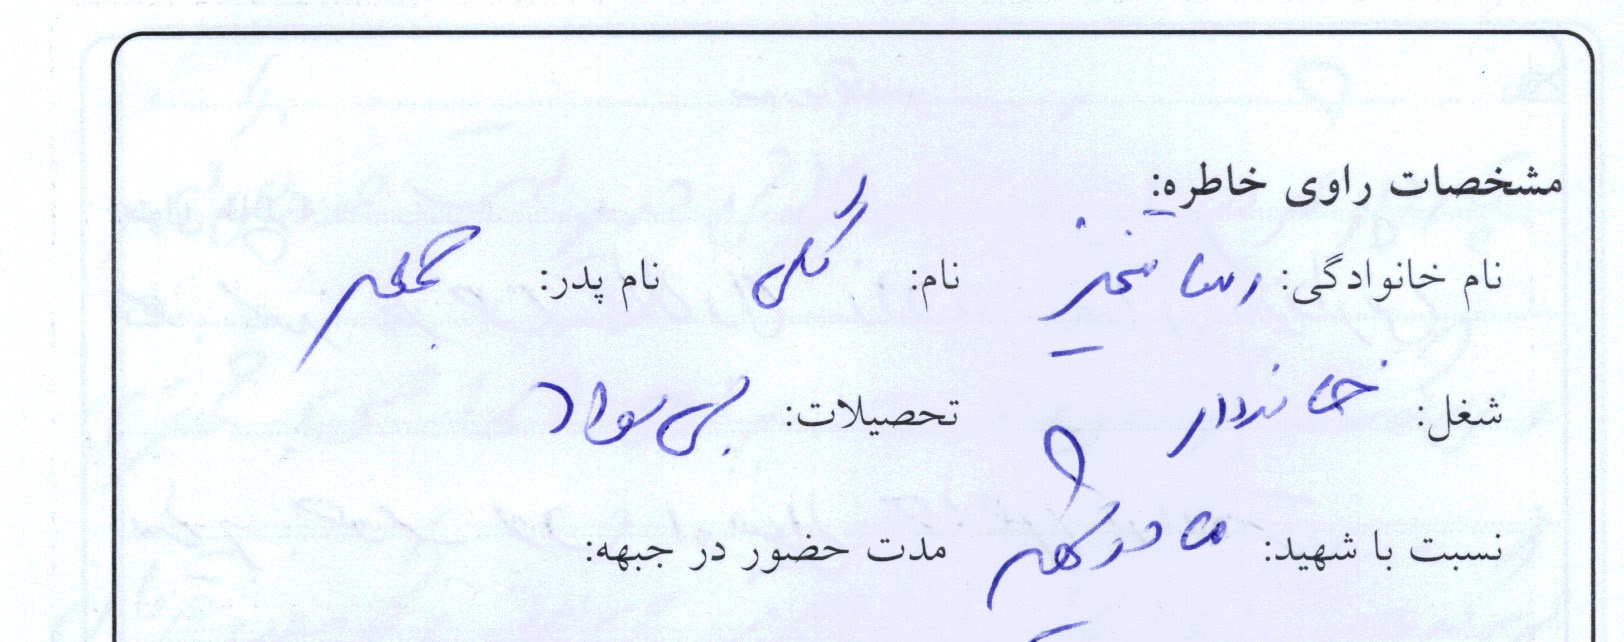 مشخصات راوی خاطره:
نام خانوادگی: رستاخیز نام: گلی نام پدر:
شغل: خانه دار تحصیلات: بی سواد
نسبت با شهید: مادر مدت حضور در جبهه: